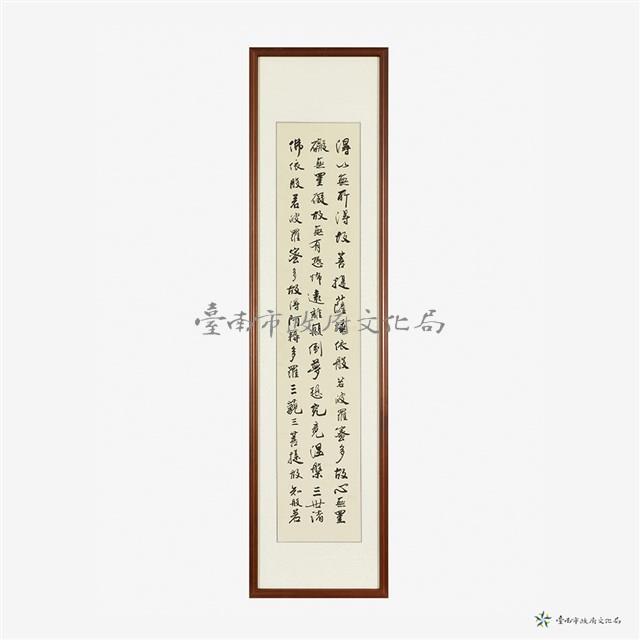 得以無所得故菩提薩埵依般若波羅蜜多故心無罣
礙無罣礙故無有恐怖遠離顛倒夢想究竟涅槃三世諸
佛依般若波羅蜜多故得阿耨多羅三藐三菩提故知般若
臺南市政府文化局
臺南市政府文化局